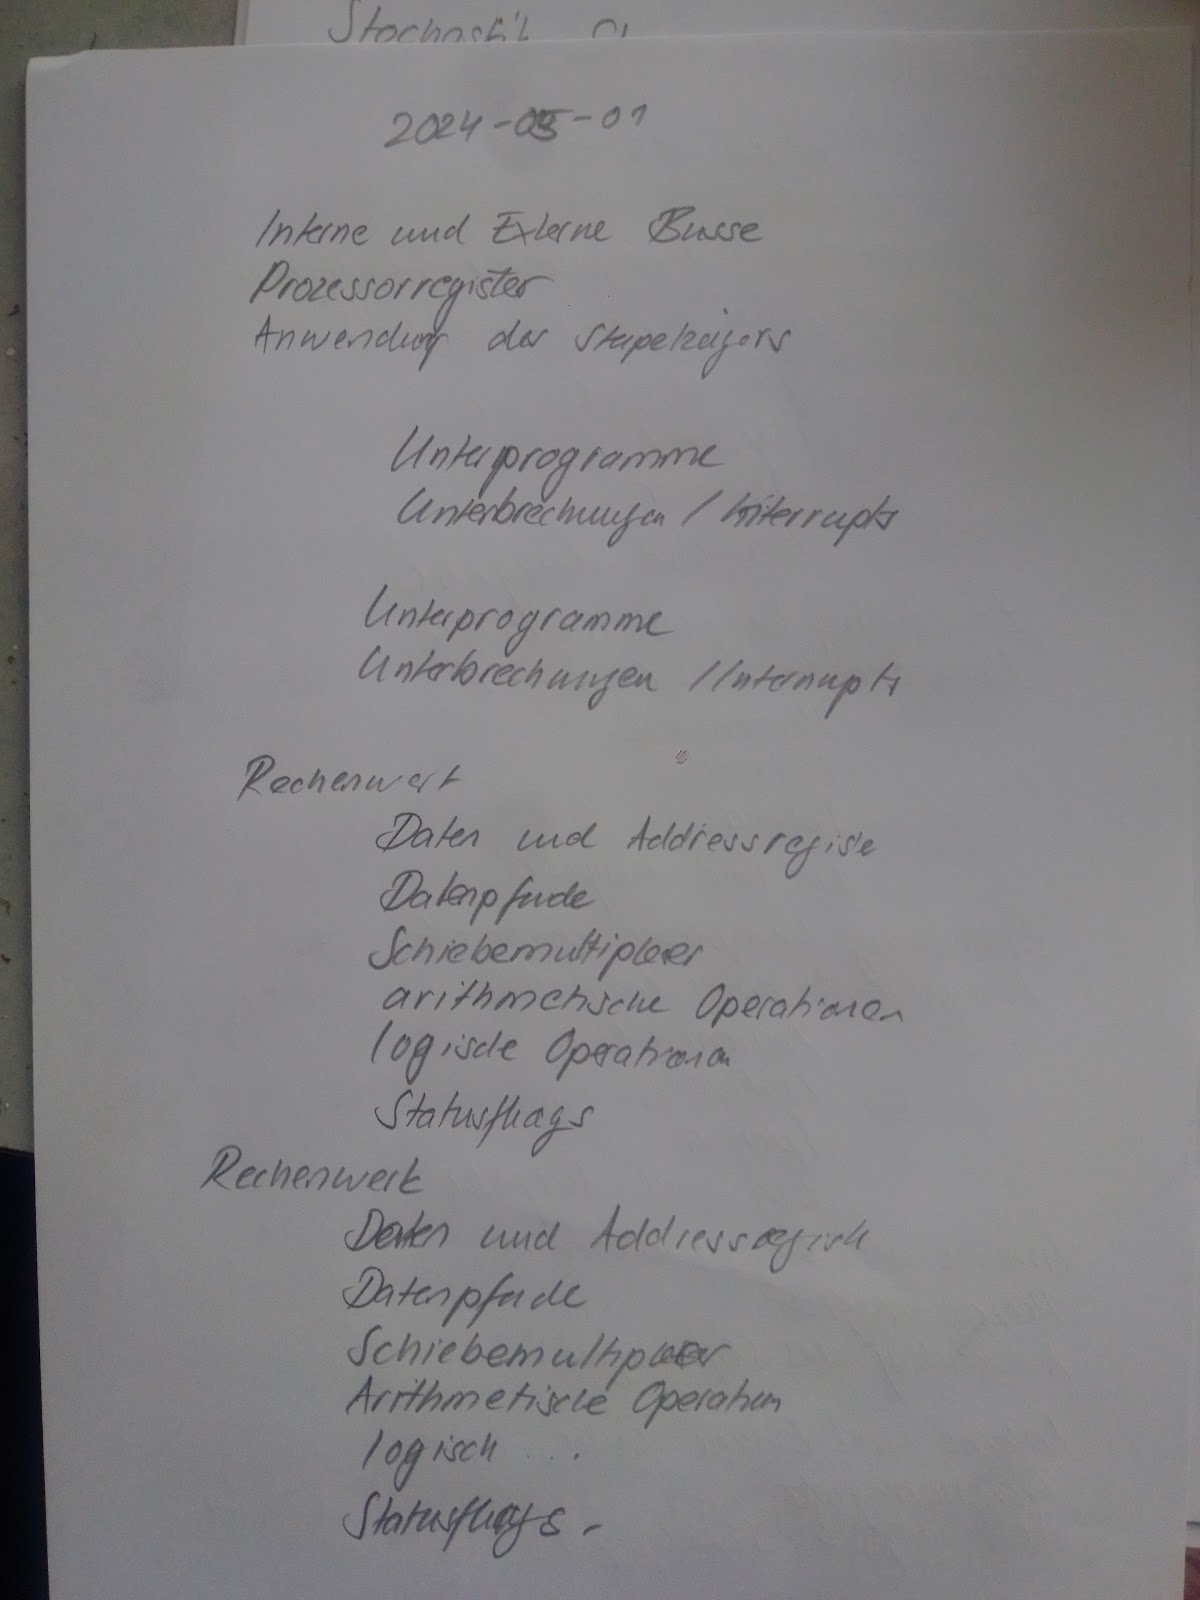 Stochastik
2024-05-01
Interne und Externe Busse
Prozessorregister
Anwendung des Stapelzeigers
Unterprogramme
Unterbrechungen / Interrupts
Unterprogramme
Unterbrechungen / Interrupts
Rechenwerk
Daten und Addressregiste
Datenpfade
Schiebemultiplexer
arithmetische Operationen
logische Operationen
Statusflags
Rechenwerk
Daten und Addressregiste
Datenpfade
Schiebemultiplexer
Arithmetische Operation
logisch ...
Statusflags -